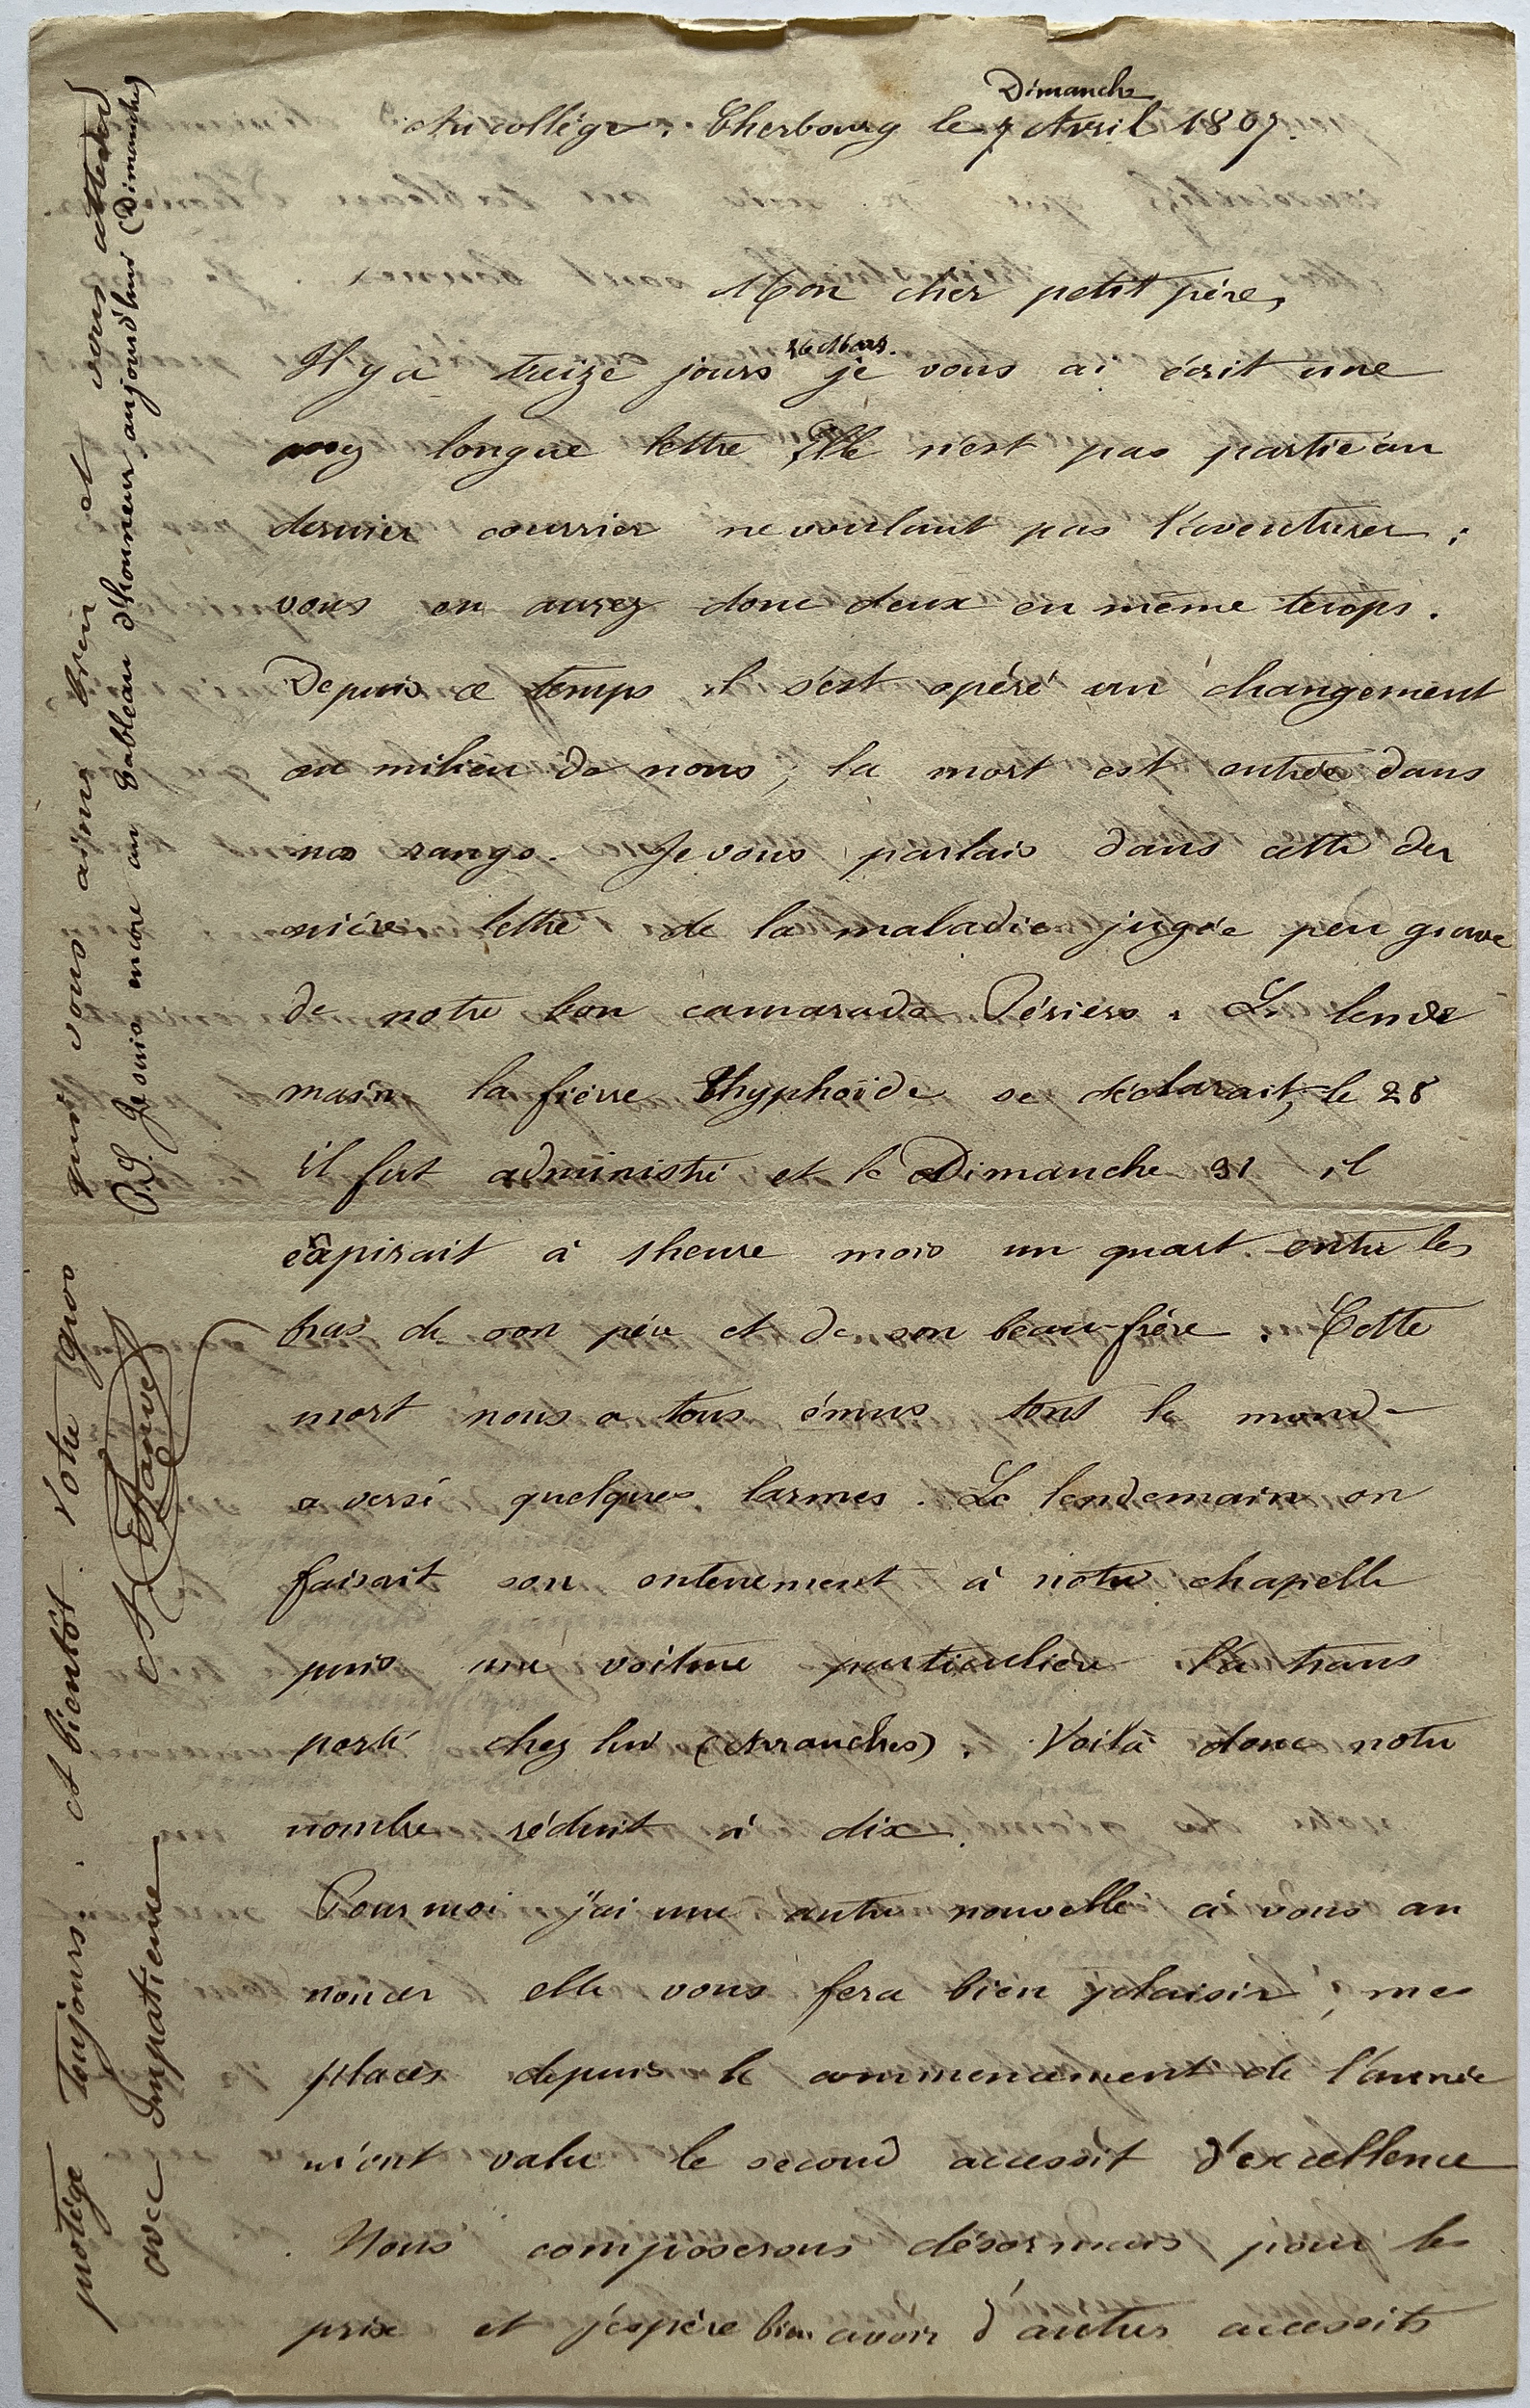 Dimanche
Au collège. Cherbourg le 7 Avril 1867.
Mon cher petit père,
26 Mars.
Il y a treize jours je vous ai écrit une
longue lettre Elle n'est pas partie au
dernier courrier ne voulant pas l'aventurer ;
vous en aurez donc deux en même temps.
Depuis ce temps il s'est opéré un changement
au milieu de nous ; la mort est entrée dans
nos rangs. Je vous parlais dans cette der
nière lettre de la maladie jugée peu grave
de notre bon camarade Périers. Le lende
main la fièvre thyphoïde se déclarait, le 28
il fut administré et le Dimanche 31 il
expirait à 1 heure mois un quart entre les
bras de son père et de son beau-frère. Cette
mort nous a tous émus tout le monde
a versé quelques larmes. Le lendemain on
faisait son enterrement à notre chapelle
puis une voiture particulière l'a trans
porté chez lui (Avranches). Voilà donc notre
nombre réduit à dix.
Pour moi j'ai une autre nouvelle à vous an
noncer elle vous fera bien plaisir ; mes
places depuis le commencement de l'année
m'ont valu le second accessit d'excellence
. Nous composerons désormais pour les
prix et j'espère bien avoir d'autres accessits
protège toujours. et bientôt. Votre gros qui vous aime bien et vous attend
avec impatience
A. Hanve
P.S. Je suis encore au tableau d'honneur aujourd'hui (Dimanche)